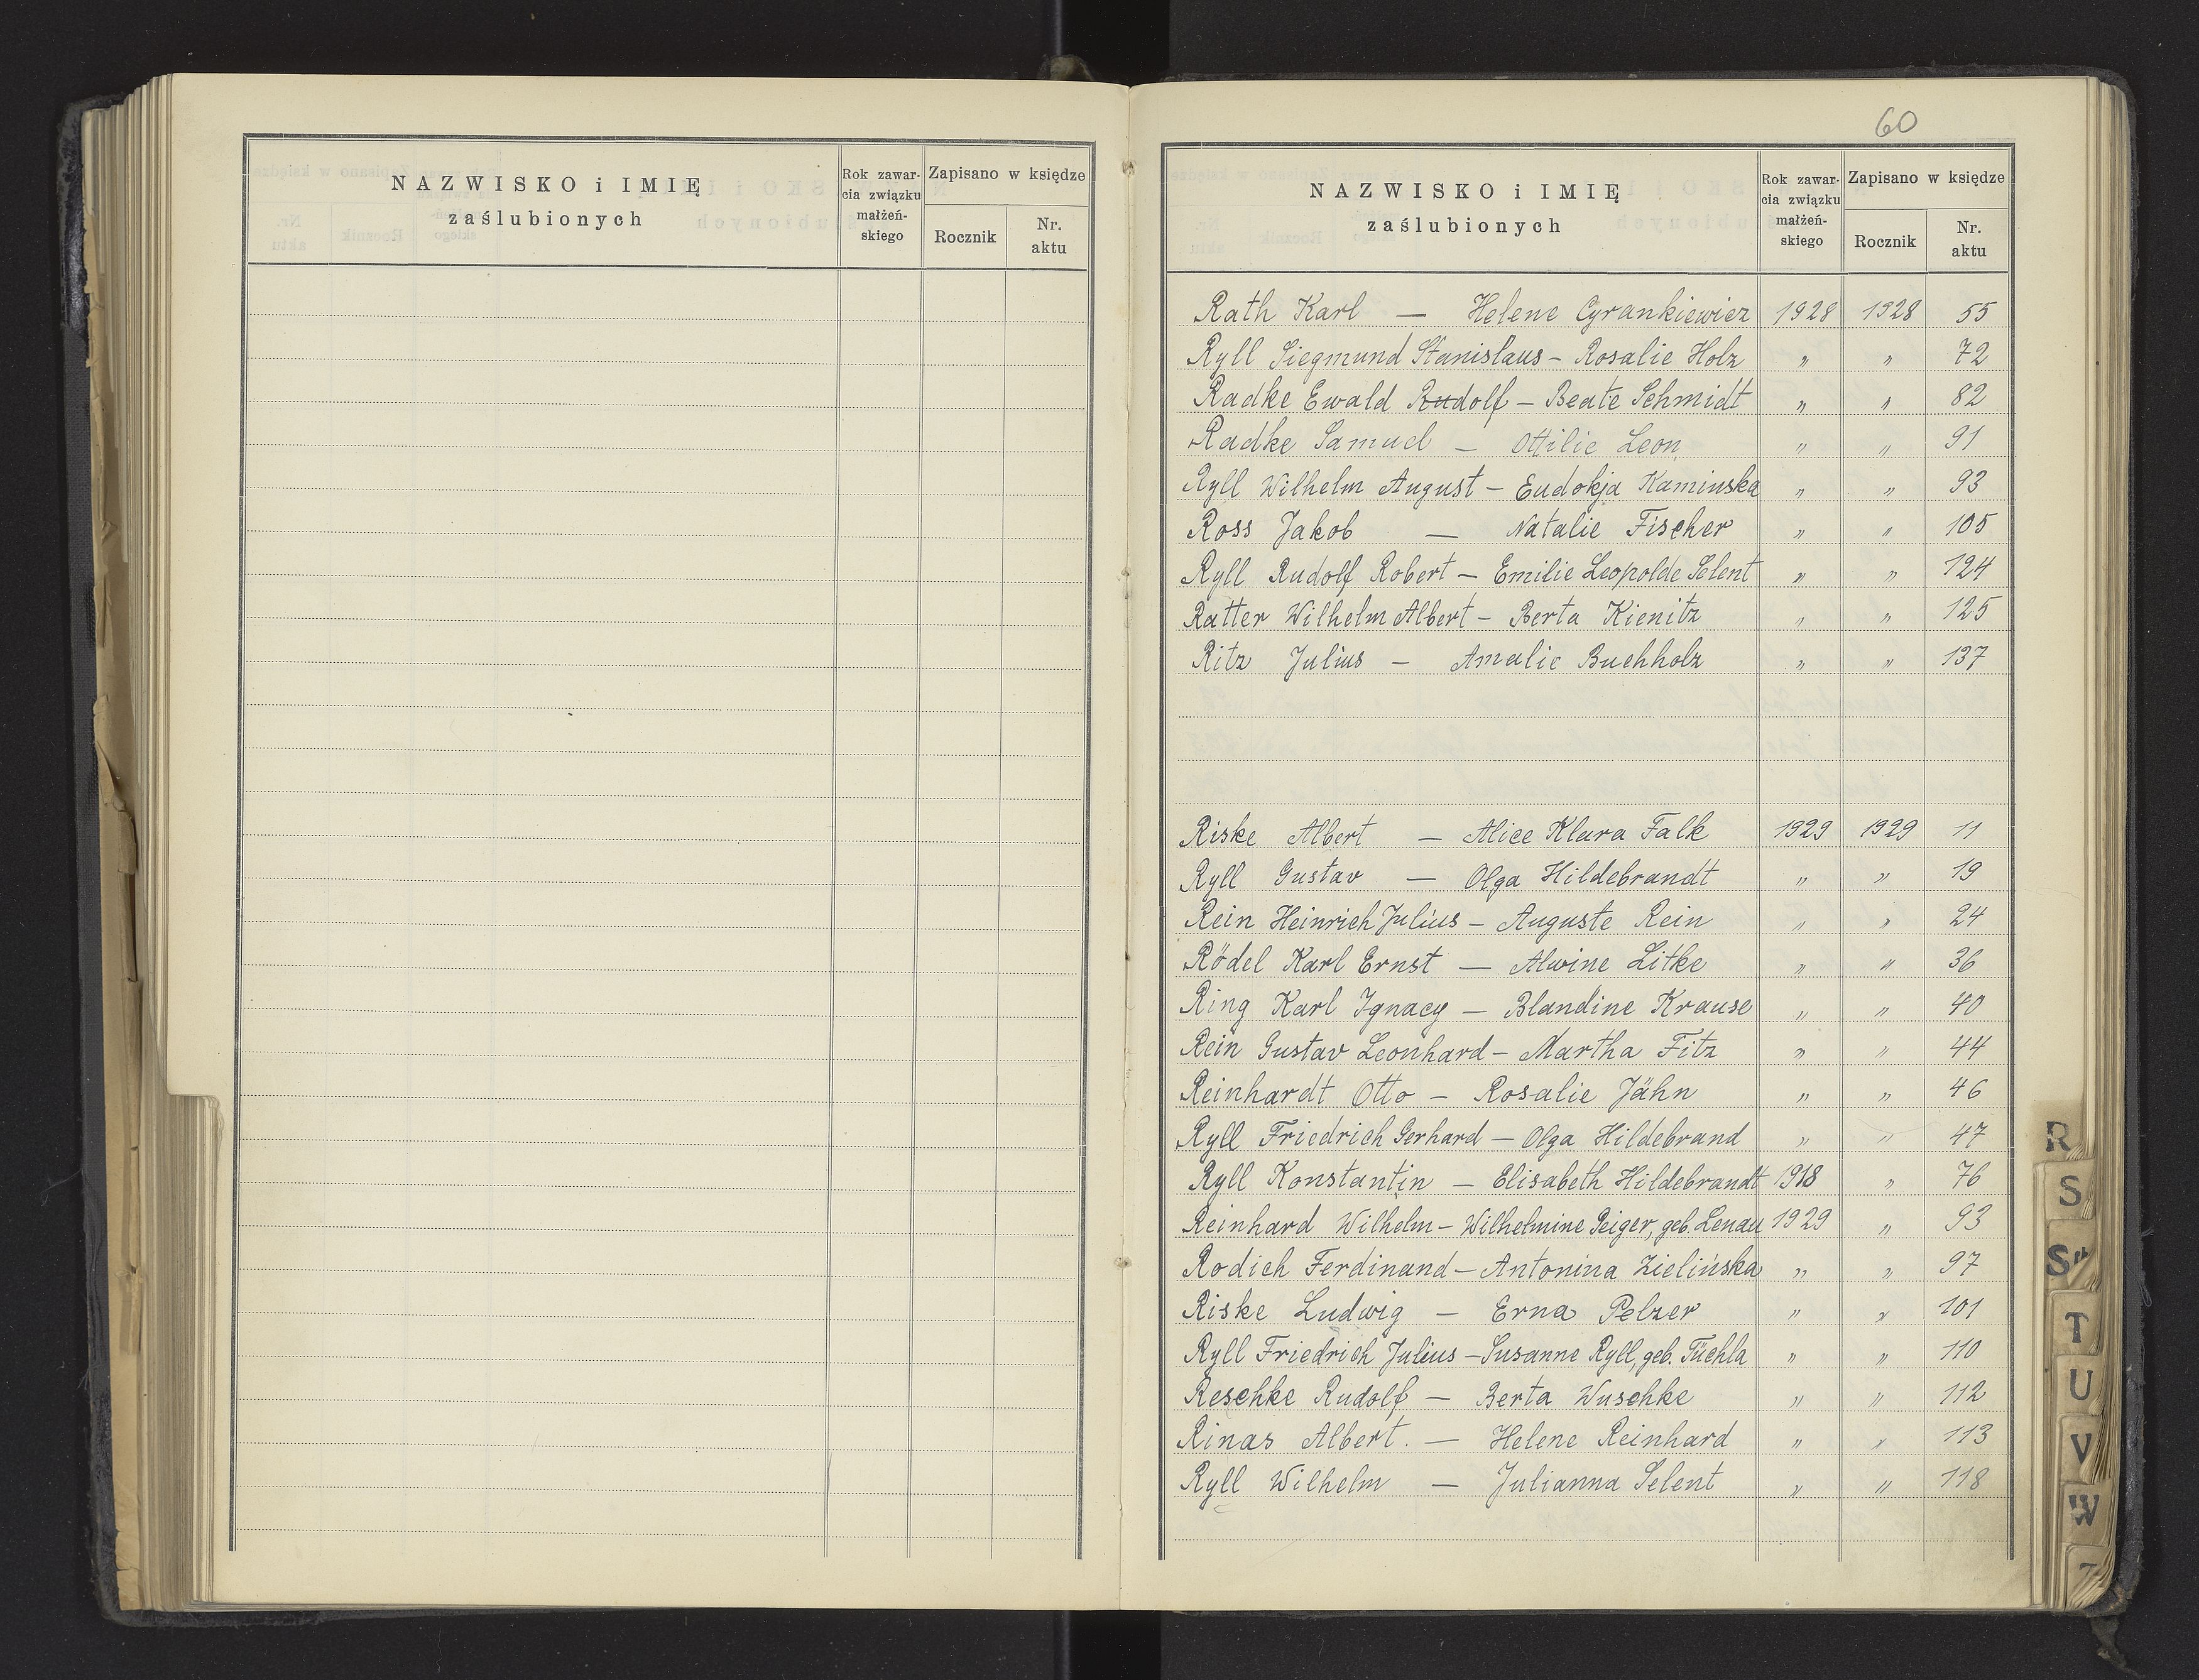 NAZWISKO i IMIĘ
zaślubionych
Rok zawar-
cia związku
małżeń-
skiego
Zapisano w księdze
Rocznik
Nr.
aktu
60
NAZWISKO i IMIĘ
zaślubionych
Rok zawar-
cia związku
małżeń-
skiego
Zapisano w księdze
Rocznik
Nr.
aktu
Rath Karl — Helene Cyrankiewicz 1928 1928 55
Ryll Siegmund Stanislaus - Rosalie Holz " " 72
Radke Ewald Rudolf - Beate Schmidt " " 82
Radke Samuel — Ottilie Leon " " 91
Ryll Wilhelm August - Eudokja Kaminska " " 93
Ross Jakob — Natalie Fischer " " 105
Ryll Rudolf Robert - Emilie Leopolde Selent " " 124
Ratter Wilhelm Albert - Berta Kienitz " " 125
Ritz Julius — Amalie Buchholz " " 137
Riske Albert — Alice Klara Falk 1929 1929 11
Ryll Gustav — Olga Hildebrandt " " 19
Rein Heinrich Julius - Auguste Rein " " 24
Rödel Karl Ernst — Alwine Litke " " 36
Ring Karl Ignacy — Blandine Krause " " 40
Rein Gustav Leonhard - Martha Fitz " " 44
Reinhardt Otto — Rosalie Jähn " " 46
Ryll Friedrich Gerhard — Olga Hildebrand " " 47
Ryll Konstantin — Elisabeth Hildebrandt 1918 " 76
Reinhard Wilhelm - Wilhelmine Geiger, geb. Lenau 1929 " 93
Rodich Ferdinand - Antonina Zielińska " " 97
Riske Ludwig — Erna Pelzer " " 101
Ryll Friedrich Julius - Susanne Ryll, geb. Tüchla " " 110
Reschke Rudolf — Berta Wuschke " " 112
Rinas Albert. — Helene Reinhard " " 113
Ryll Wilhelm — Julianna Selent " " 118
R
S
T
U
V
W